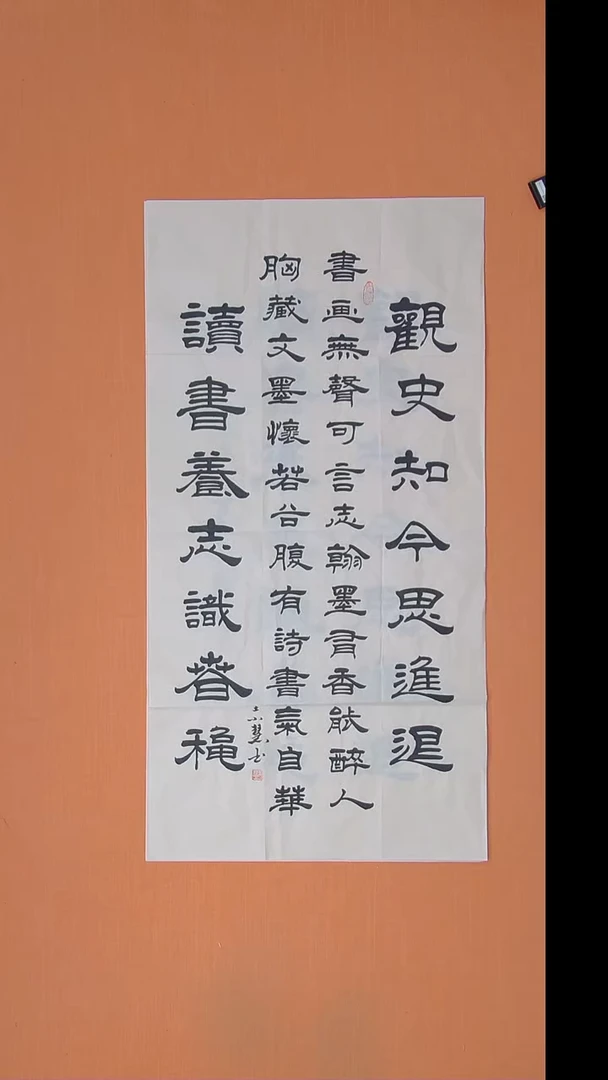 觀史知今思進退
書画無聲可言志翰墨有香能醉人
胸藏文墨懷若谷腹有詩書氣自華
讀書養志識春穐
慧书